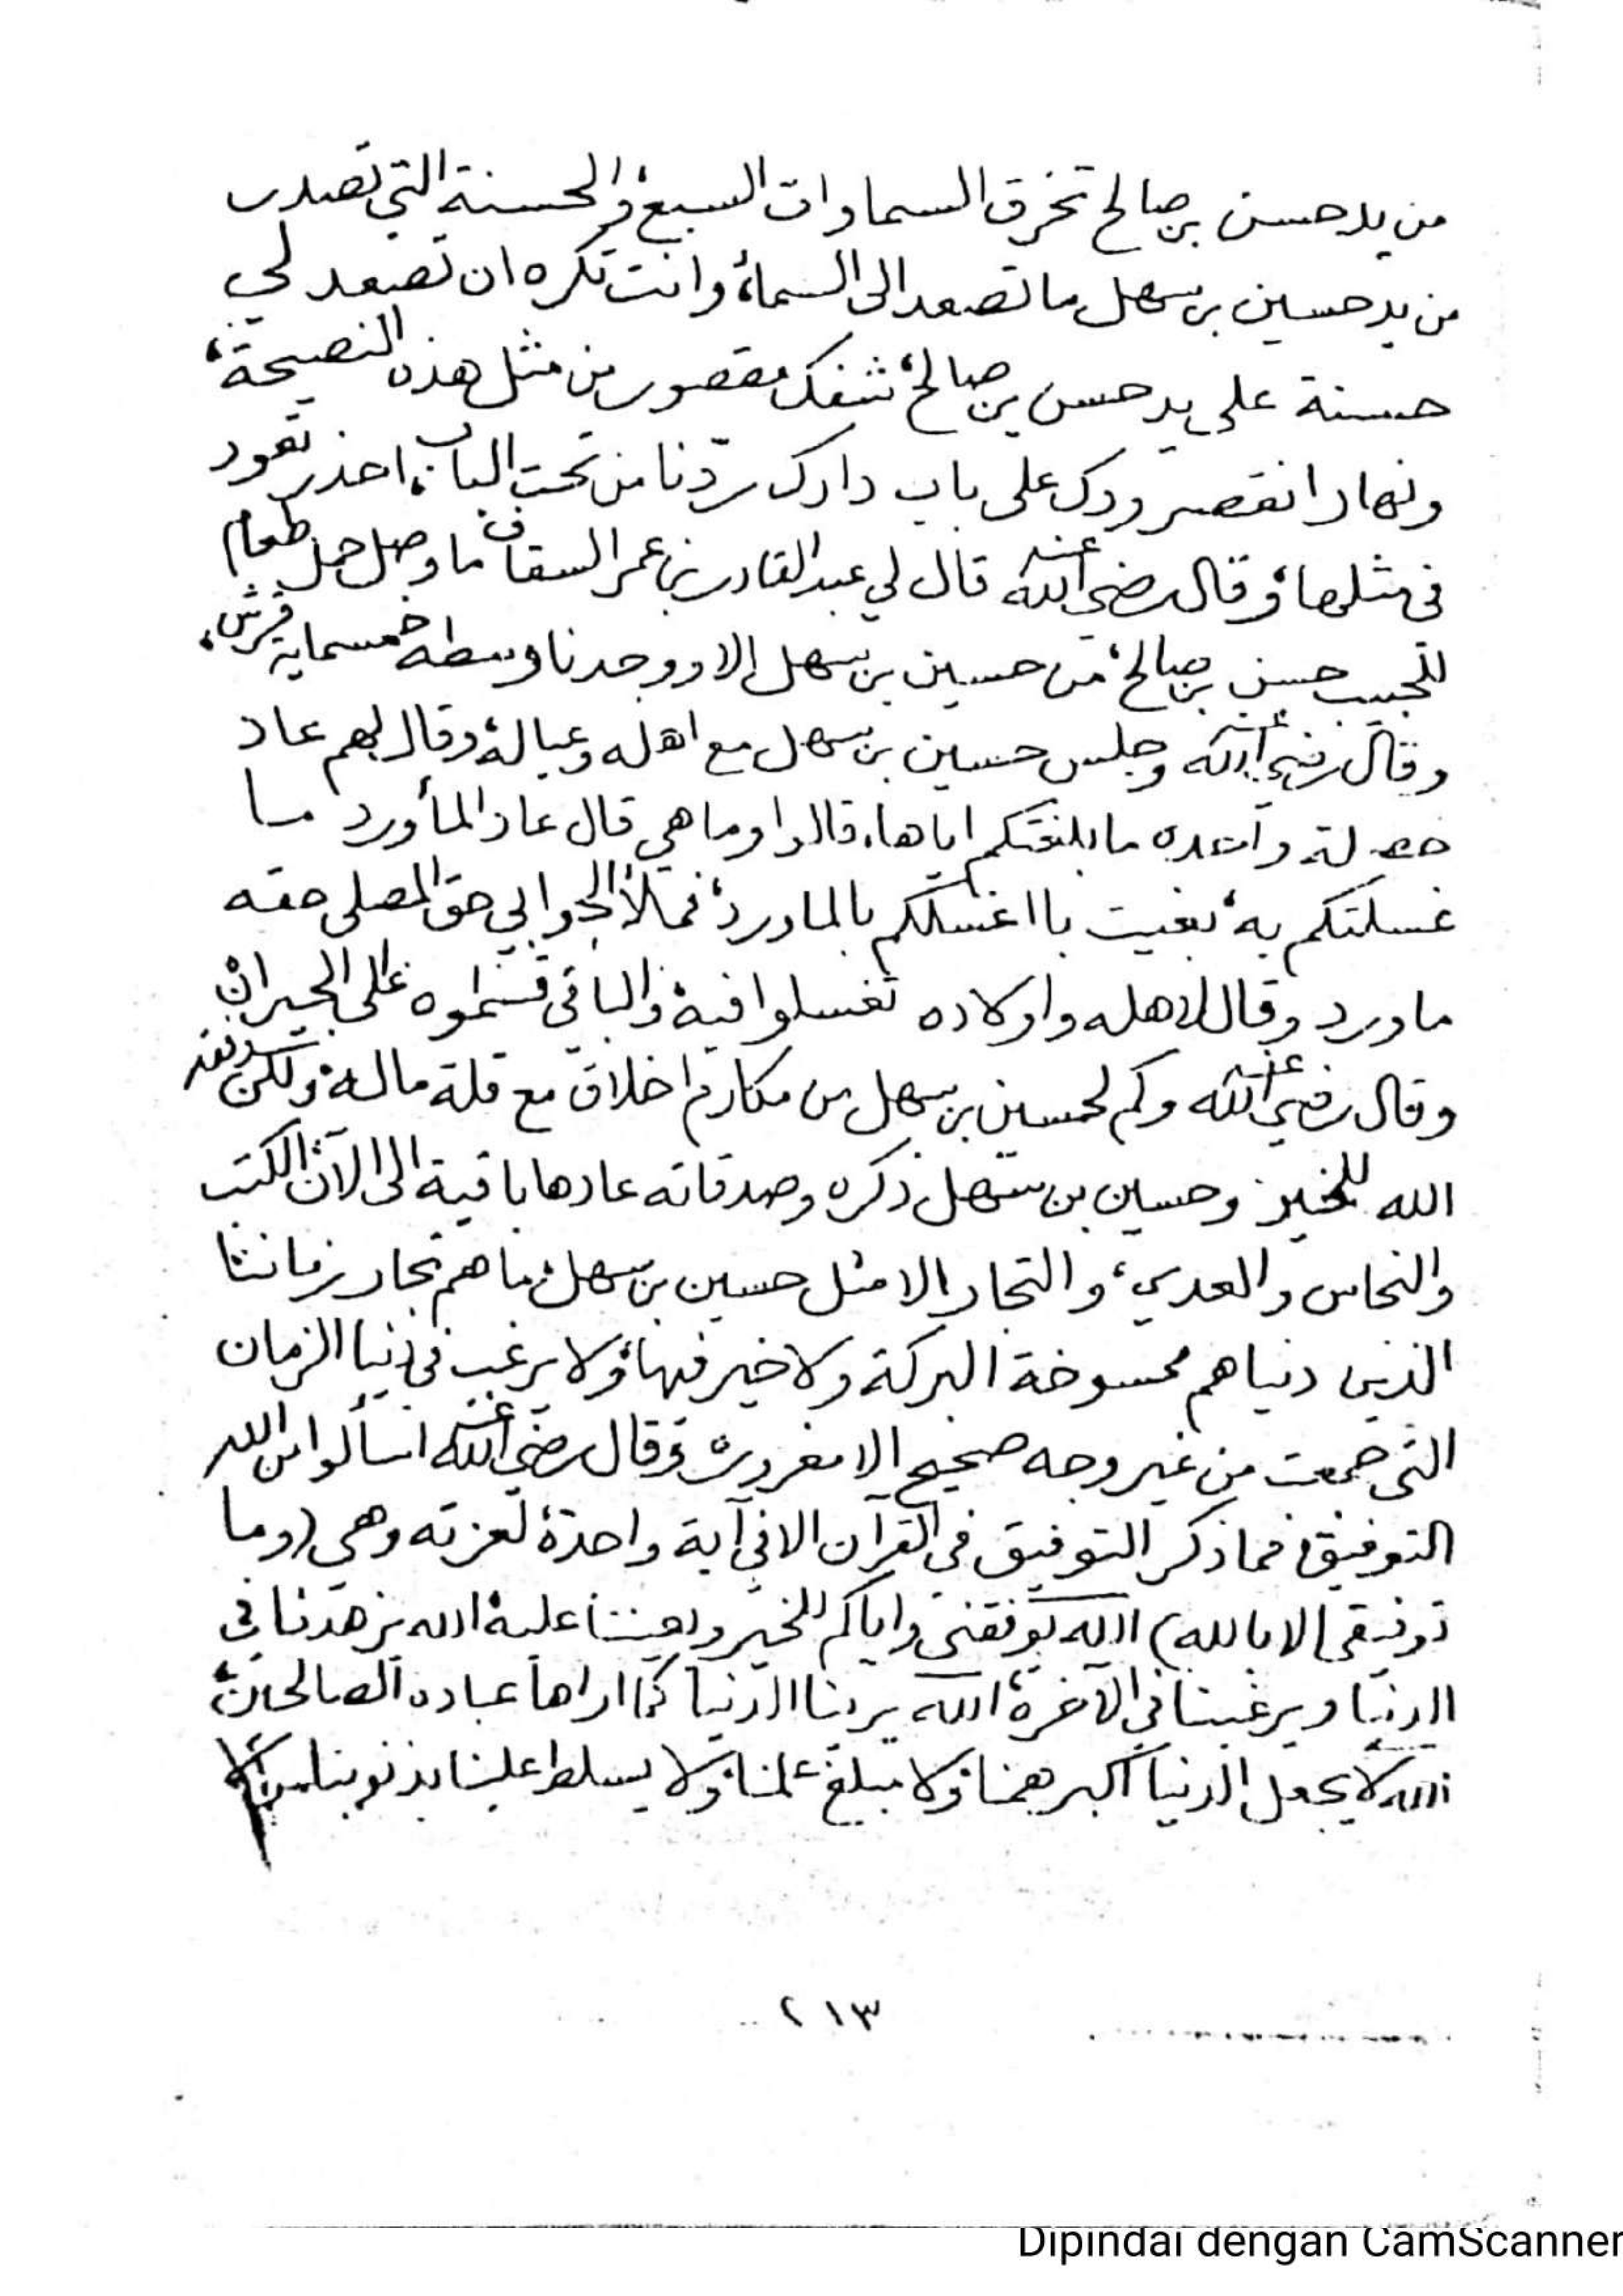 من يد حسن بن صالح تخرق السماوات السبع، والحسنة التي تصدر
من يد حسين بن سهل ما تصعد الى السماء، وانت تكره ان تصعد لي
حسنة على يد حسن بن صالح، شفك مقصور من مثل هذه النصيحة،
ونهار انقصر ودك على باب دارك ردّنا من تحت الباب، احذر تعود
في مثلها، وقال رضي الله عنه قال لي عبد القادر بن عمر السقاف ما وصل حمل طعام
للحبيب حسن بن صالح، من حسين بن سهل إلا ووجدنا وسطه خمسماية قرش،
وقال رضي الله عنه وجلس حسين بن سهل مع اهله وعياله، وقال لهم عاد
خصلة واحده ما بلغتكم اياها، قالوا وما هي قال عاد المأورد ما
غسلتكم به، بغيت با اغسلكم بالماورد، فملأ الجوابي حق المصلى حقه
ماورد وقال لاهله واولاده تغسلوا فيه، والباقي قسّموه على الجيران
وقال رضي الله عنه وكم لحسين بن سهل من مكارم اخلاق مع قلة ماله، ولكن
الله للخير وحسين بن سهل ذكره وصدقاته عادها باقية الى الآن، الكتب
والنحاس والعدي، والتجار إلا مثل حسين بن سهل، ما هم تجار زماننا
الذين دنياهم ممسوخة البركة ولا خير فيها، ولا يرغب في دنيا الزمان
التي جمعت من غير وجه صحيح إلا مغرور، وقال رضي الله عنه اسألوا من الله
التوفيق، فما ذكر التوفيق في القرآن الا في آية واحدة، لعزته وهي (وما
توفيقي إلا بالله) الله يوفقني واياكم للخير ويعيننا عليه، الله يزهدنا في
الدنيا ويرغبنا في الآخرة، الله يرينا الدنيا كما اراها عباده الصالحين،
الله لا يجعل الدنيا اكبر همنا، ولا مبلغ علمنا، ولا يسلط علينا بذنوبنا من لا
٢١٣
Dipindai dengan CamScanner